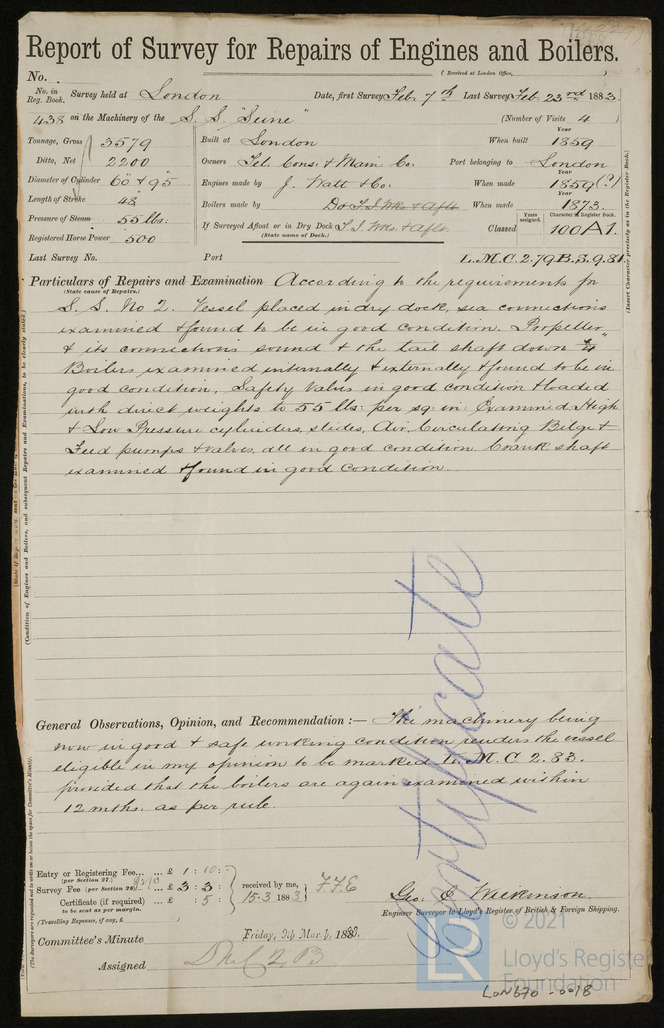 Report of Survey for Repairs of Engines and Boilers.
No.
(Received at London Office, )
No. in Reg. Book. Survey held at London Date, first Survey Feb 7th Last Survey Feb 23rd 1883.
438 on the Machinery of the S. S. "Seine" (Number of Visits 4
Tonnage, Gross 3579 Built at London When built Year 1859
Ditto, Net 2200 Owners Tel. Cons. & Main Co. Port belonging to London
Diameter of Cylinder 60 & 95 Engines made by J. Watt & Co. When made Year 1859(?)
Length of Stroke 48 Boilers made by Do T. I. Wks & Aft. When made Year 1873.
Pressure of Steam 55 lbs. If Surveyed Afloat or in Dry Dock T. I. Wks. & Aft. Classed Years assigned. Character in Register Book. 100A1.
(State name of Dock.)
Registered Horse Power 500
Last Survey No. Port L.M.C.2.79.B.S.9.81
Particulars of Repairs and Examination According to the requirements for
(State cause of Repairs.)
S. S. No 2. Vessel placed in dry dock, sea connections
examined & found to be in good condition. Propeller
& its connections sound & the tail shaft down
Boilers examined internally & externally & found to be in
good condition, Safety Valves in good condition & loaded
with direct weights to 55 lbs: per sq in: Examined High
& Low Pressure cylinders, slides, Air, Circulating Bilge &
Feed pumps & valves, all in good condition. Crank shaft
examined & found in good condition.
Certificate
General Observations, Opinion, and Recommendation :— The machinery being
now in good & safe working condition renders the vessel
eligible in my opinion to be marked L. M. C 2. 83.
provided that the boilers are again examined within
12 mths. as per rule
Entry or Registering Fee... ... £ 1 : 10 :
(per Section 27.)
Survey Fee (per Section 28) ... £ 3 : 3 : received by me, F.F.E
Certificate (if required) ... £ : 5 : 15.3 1883
to be sent as per margin.
(Travelling Expenses, if any, £
Geo. E. Wilkinson.
Engineer Surveyor to Lloyd's Register of British & Foreign Shipping.
Committee's Minute Friday,
Assigned
© 2021
Lloyd's Register
Foundation
LR
LON670-0018
(Insert Character precisely as in the Register Book.)
(Condition of Engines and Boilers, and subsequent Repairs and Examinations, to be clearly stated.)
(The Surveyors are requested not to write on or below the space for Committee's Minute.)